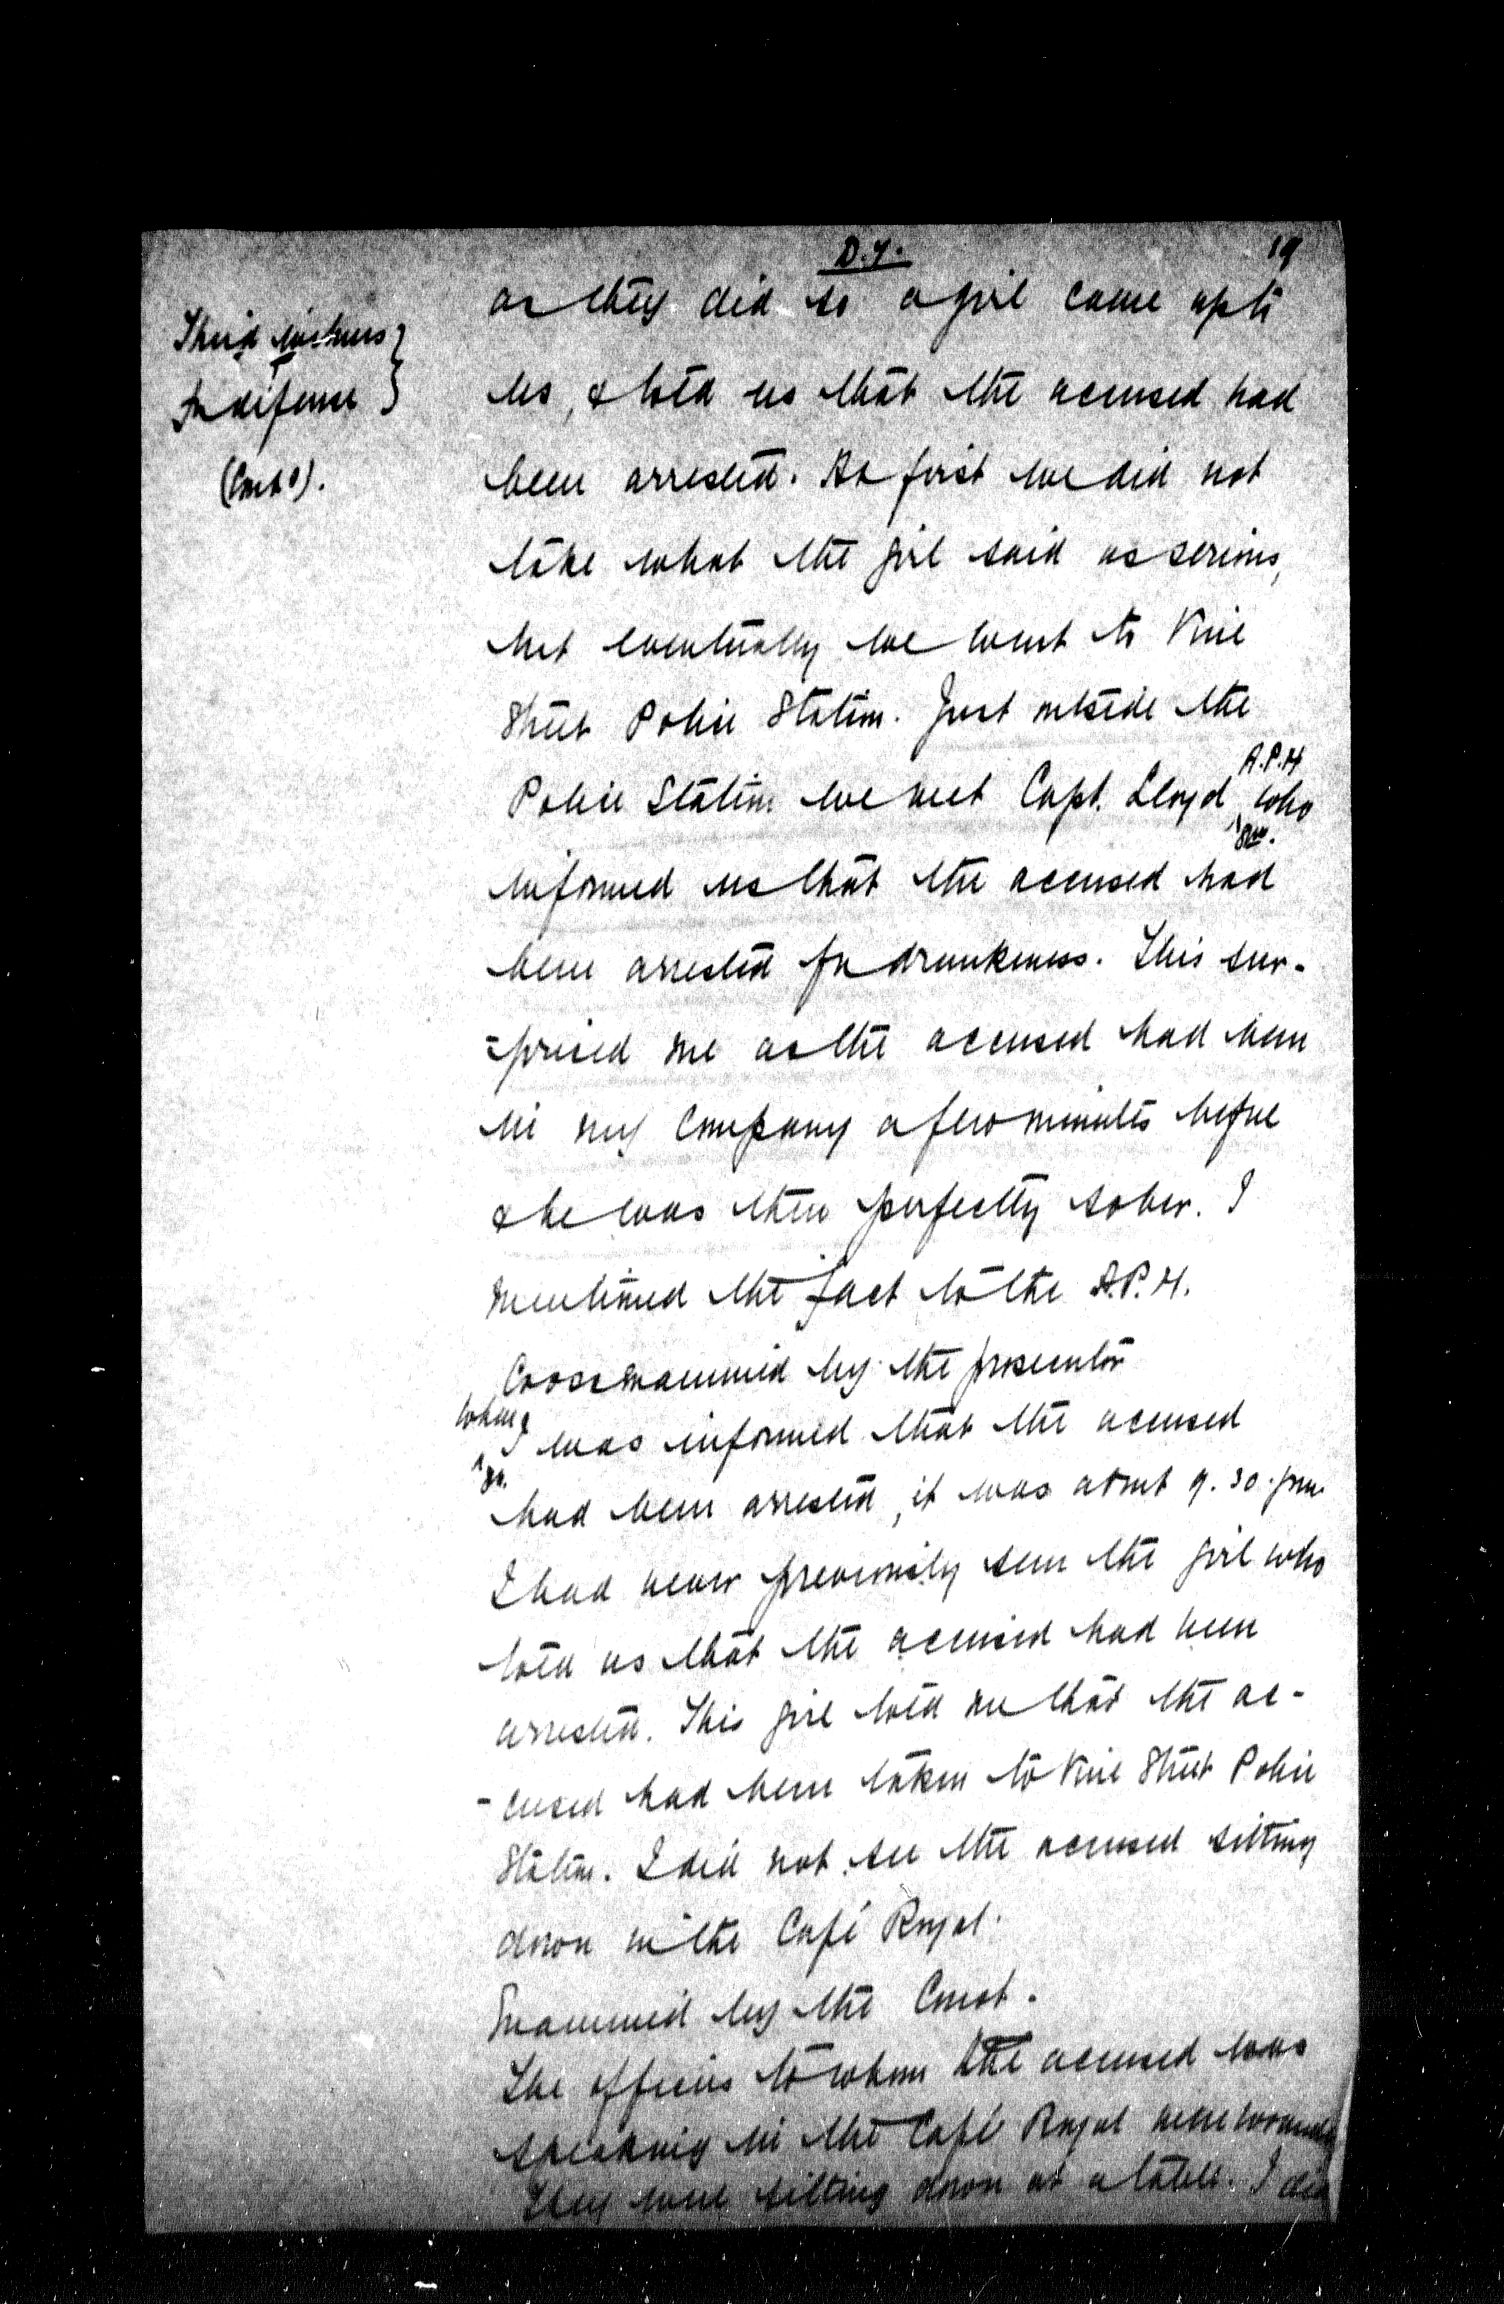 D.7. 19
Third witness
for defence
(Cont'd).
as they did so a girl came up to
us, & told us that the accused had
been arrested. At first we did not
take what the girl said as serious,
but eventually we went to Vine
Street Police Station. Just outside the
A.P.M
Police Station we met Capt. Lloyd who
informed us that the accused had
been arrested for drunkeness. This sur-
-prised me as the accused had been
in my company a few minutes before
& he was then perfectly sober. I
mentioned the fact to the A.P.M.
Crossexamined by the prosecutor
when
I was informed that the accused
had been arrested, it was about 9.30.pm.
I had never previously seen the girl who
told us that the accused had been
arrested. This girl told me that the ac-
-cused had been taken to Vine Street Police
Station. I did not see the accused sitting
down in the Café Royal.
Examined by the Court.
The officers to whom the accused was
speaking in the Café Royal were wounded
They were sitting down at a table. I did